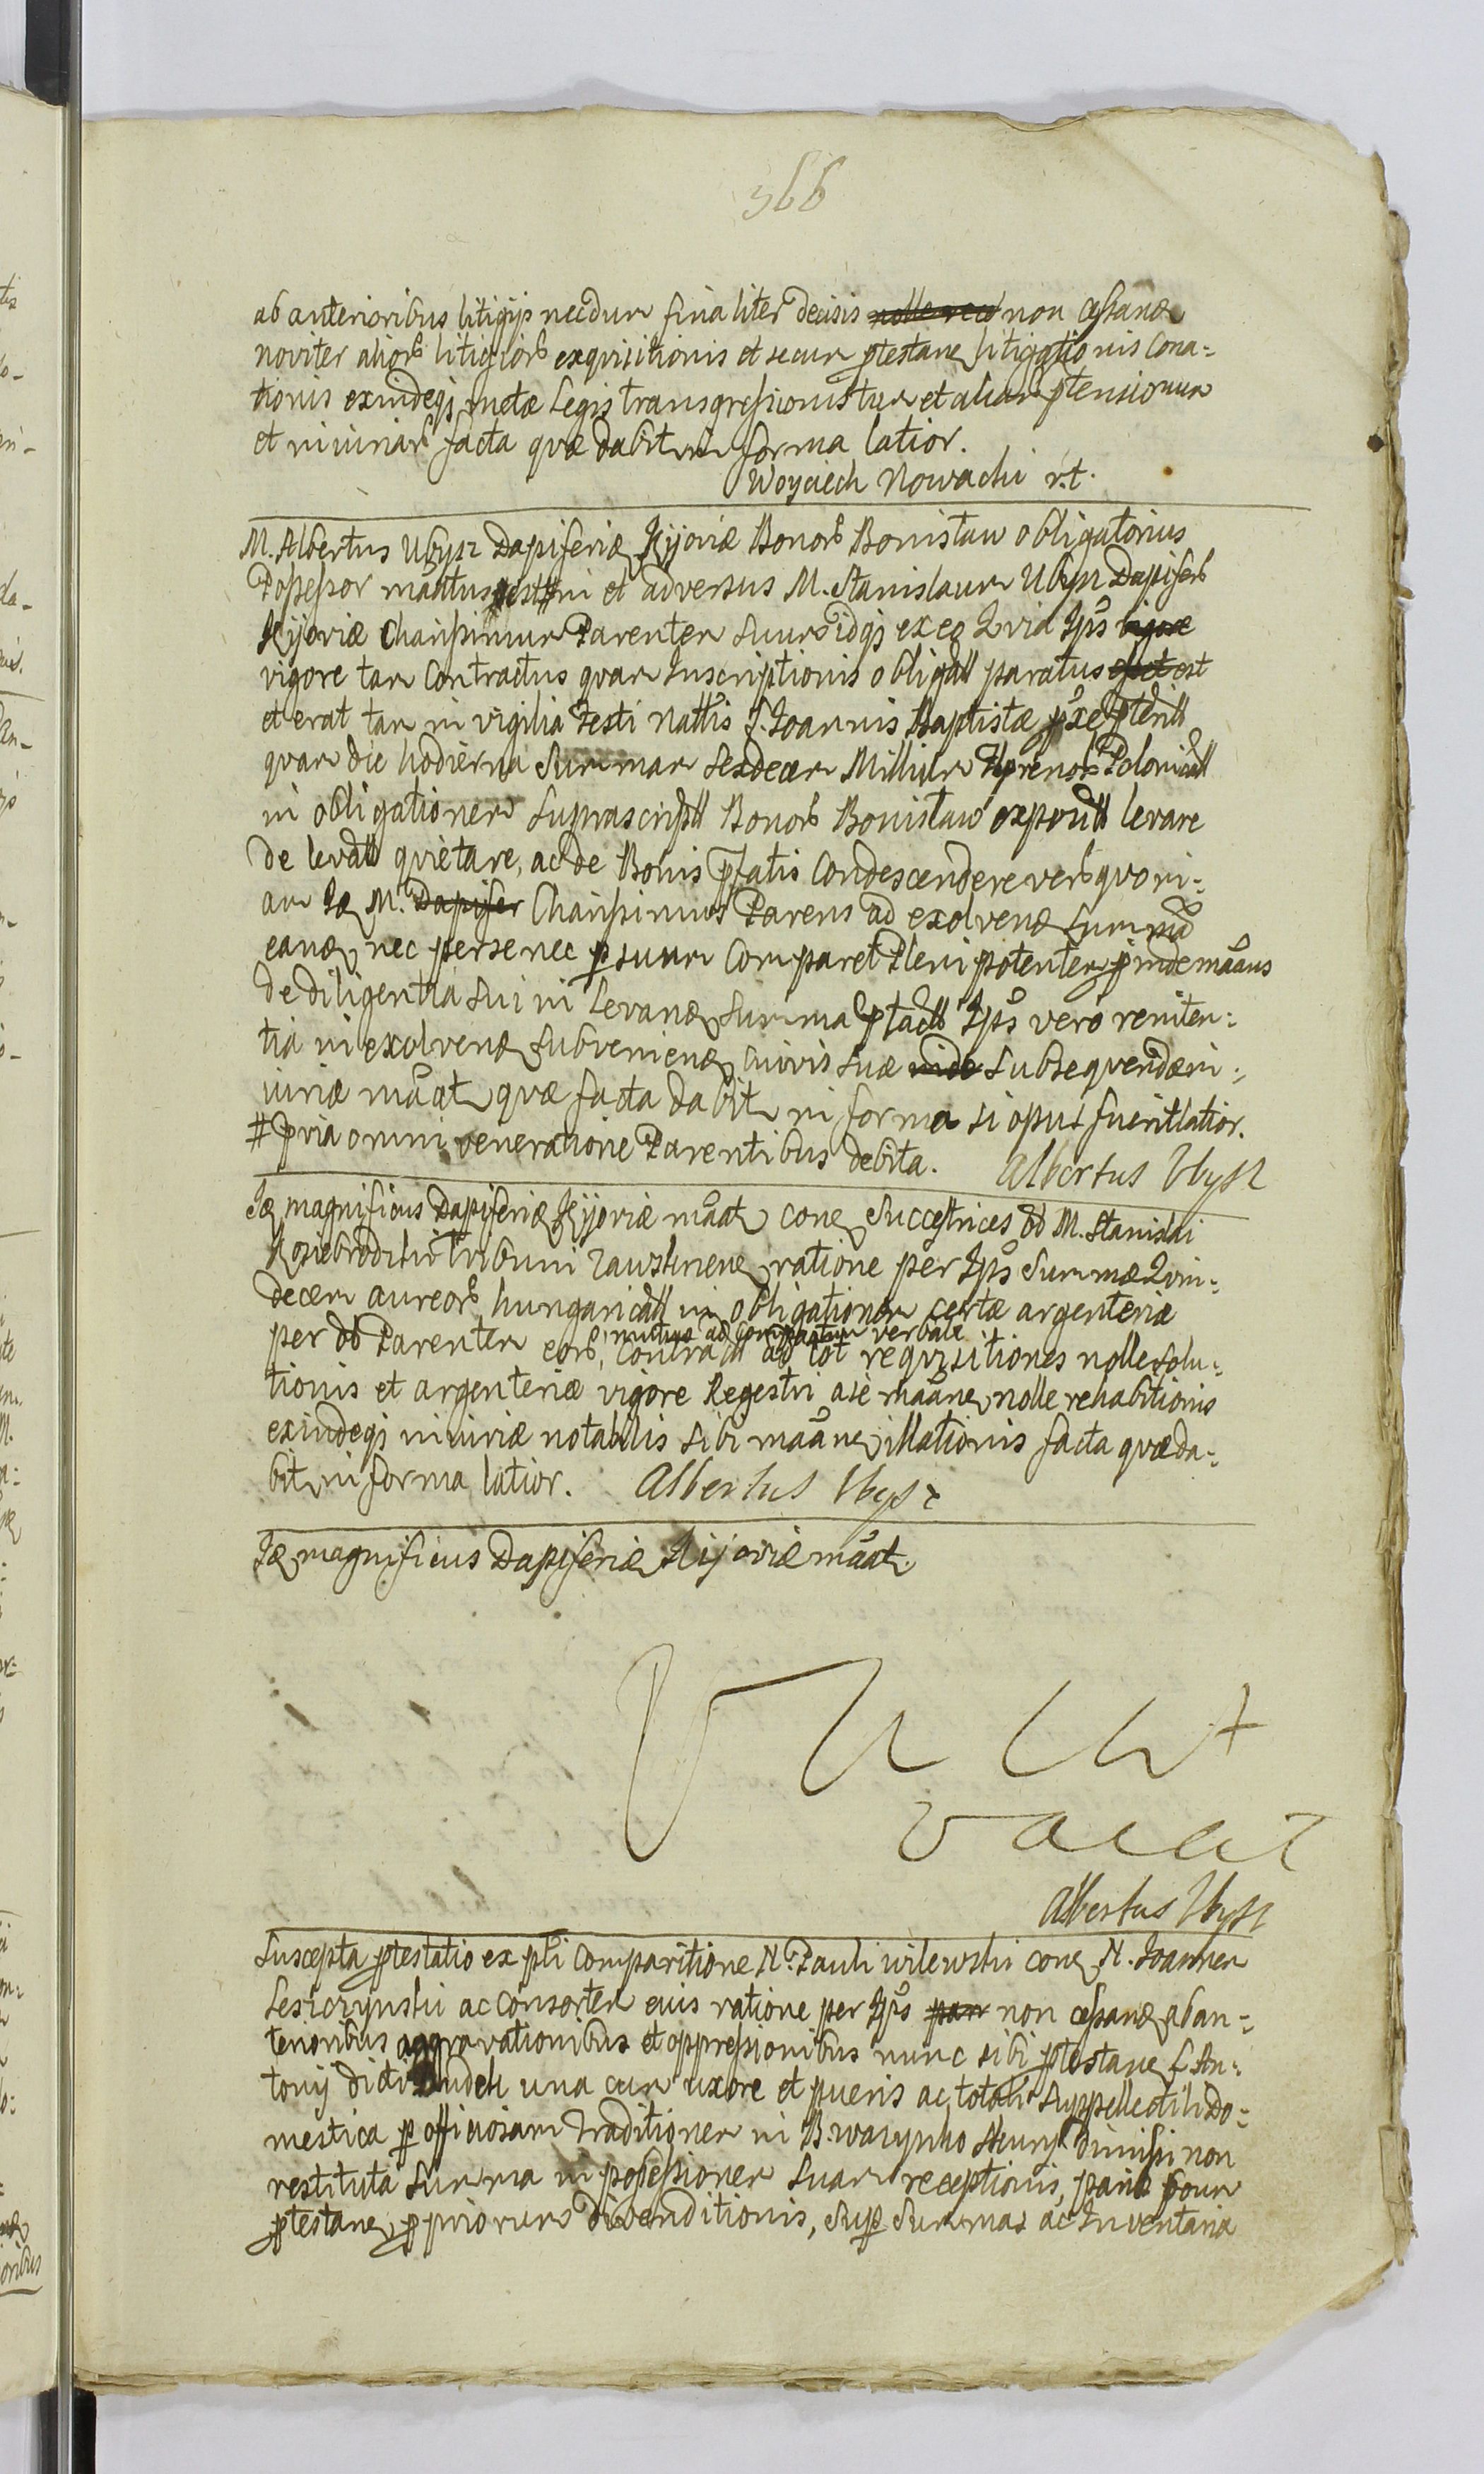 366
ab anterioribus litigijs necdum finaliter decisis nolle rece non cessane
noviter aliorb litigiorb exquisitionis et secum ptestane litigationis Cona-
tionis exindeqj metæ Legis transgressionis tum et aliarb ptensionum
et iniuriarb facta quæ dabitur in forma latior.
Woyciech Nowachi r.t.
M. Albertus Ubysz Dapiferiæ Kijoviæ Bonorb Bonisław obligatorius
Possessor manttus est # in et adversus M. Stanislaum Ubysz Dapiferb
Kijoviæ Charissimum Parentem suum idqj ex eo Quia Ips vigore
vigore tam Contractus quam Inscriptionis obligatt paratus esset est
et erat tam in vigilia Festi Nattis S. Joannis Baptistæ pxe pteritt
quam die hodierna Summam Sexdecem Millium florenorb Polonicatt
in obligationem suprascriptt Bonorb Bonisław exponitt levare
de levatt quietare, ac de Bonis pfatis Condescendere verb quoni-
am Id M. Dapifer Charissimus Parens ad exolvend Summa
eand nec per se nec p suum Comparet Plenipotentem pinde maaus
de diligentia sui in Levand Summa ptactt Ips vero reniten-
tia in exolvend subveniend cuivis suæ inde subsequendæ in-
iuriæ maat quæ facta dabit in forma si opus fuerit latior.
# Pvia omni veneratione Parentibus debita. Albertus Ubysz
Id magnificus Dapiferiæ Kijoviæ maat Cone Successtrices ol M. Stanislai
Kosiebrodzki Tribuni Zawskriene ratione per Ips Summæ Quin-
decem aureorb hungaricatt in obligationem certæ argenteriæ
mutuo ad compactum verbale
per ol Parentem eorb, contractt ad tot requisitiones nolle solu-
tionis et argenteriæ vigore Regestri a se maane nolle rehabitionis
exindeqj iniuriæ notabilis sibi maane illationis facta quæ da-
bit in forma latior. Albertus Ubysz
Id magnificus Dapiferiæ Kijoviæ maat
Vacat
vacat
Albertus Ubysz
Suscepta ptestatio ex pti Comparitione N. Pauli wilewski cone N. Joannem
Lesiczynski ac Consortem eius ratione per Ips pan non cessane ab an-
terioribus aggravationibus et oppressionibus nunc sibi ptestane L. An-
tonij dicti Dudek una cum uxore et pueris ac totali Suppellectili Do-
mestica p officiosam traditionem in B. waszynko Skury dimissi non
restituta Summa in possessionem suam receptionis, parib poum
ptestane ppriorum divenditionis, Sup Summas ac Inventaria